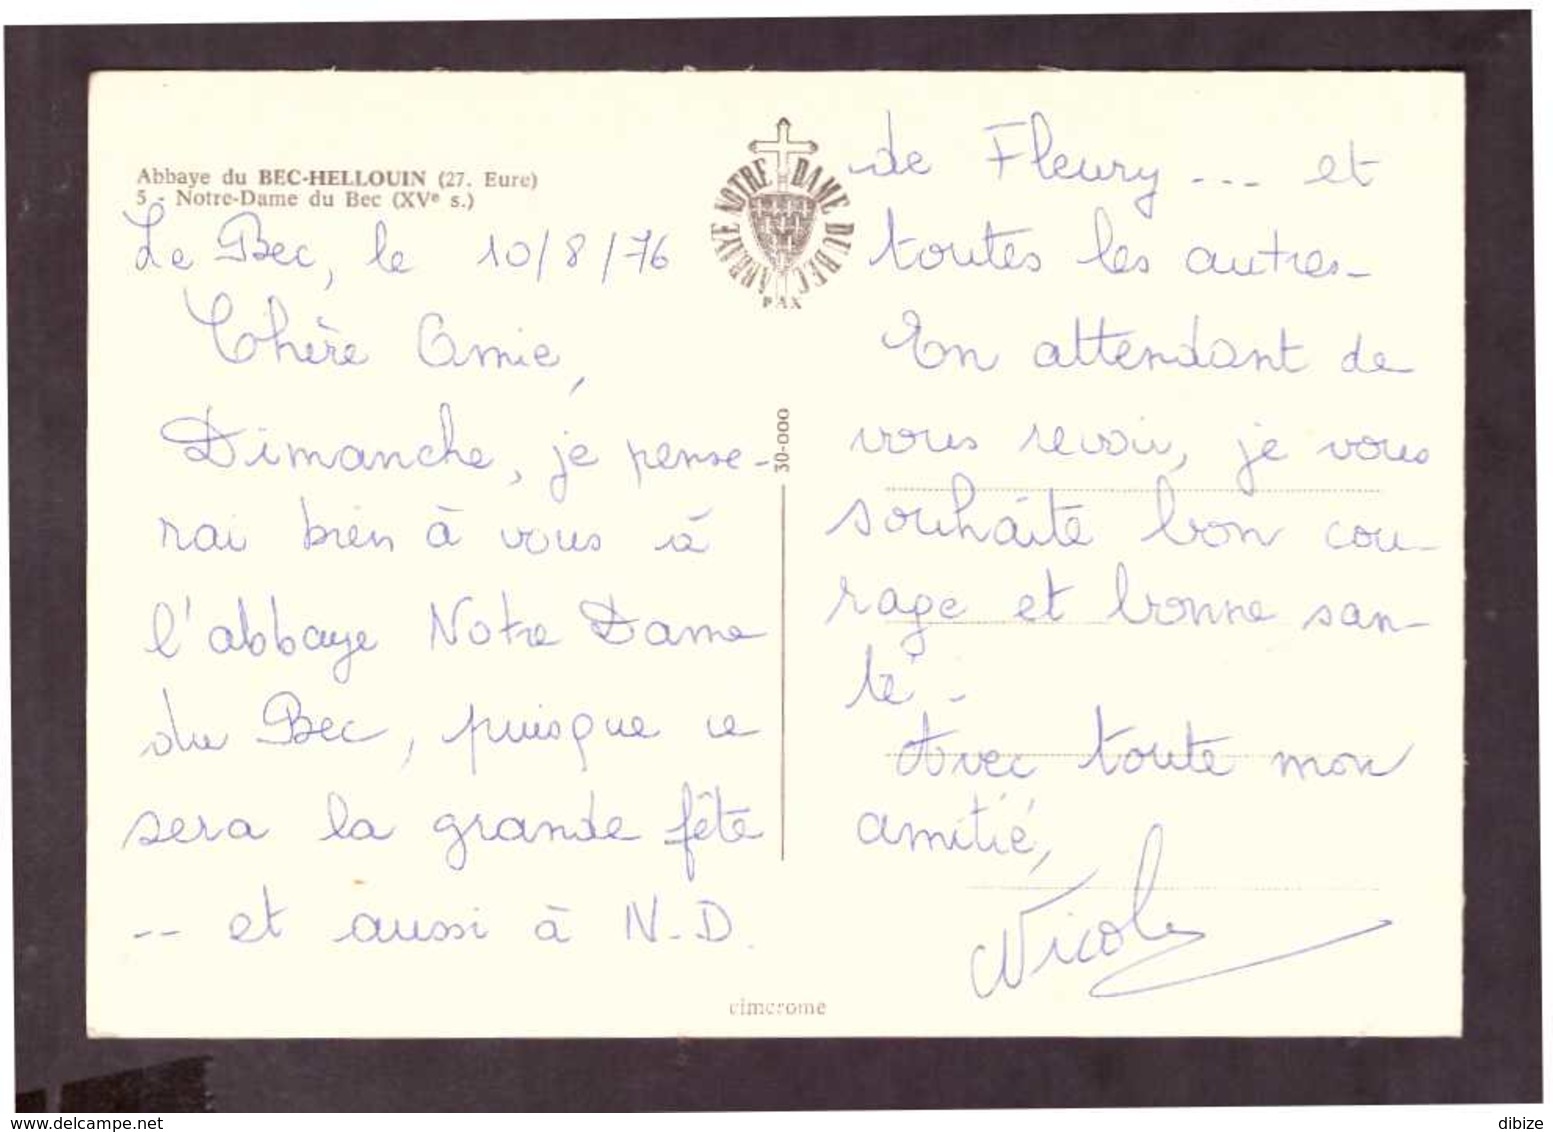 Abbaye du BEC-HELLOUIN (27. Eure)
5 - Notre-Dame du Bec (XVe s.)
Le Bec, le 10/8/76
Chère Amie,
Dimanche, je pense-
rai bien à vous à
l'abbaye Notre Dame
du Bec, puisque ce
sera la grande fête
-- et aussi à N.D.
ABBAYE NOTRE DAME DU BEC
PAX
30-000
cimcrome
de Fleury --- et
toutes les autres-
En attendant de
vous revoir, je vous
souhaite bon cou-
rage et bonne san-
té -
Avec toute mon
amitié,
Nicole
delcampe.net
dibize